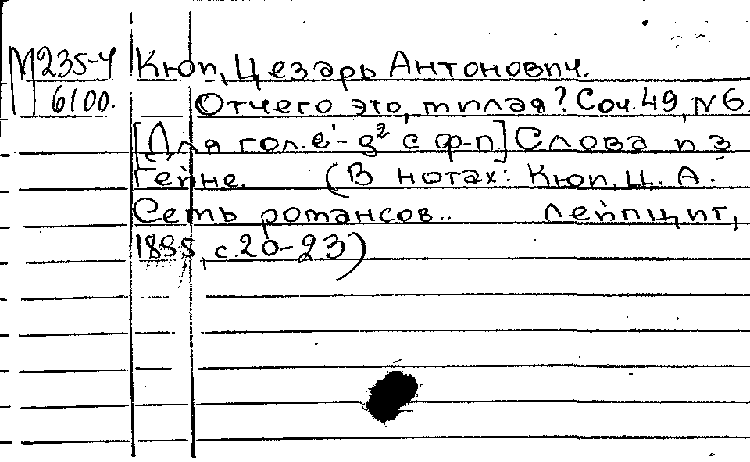 М235-4 Кюи, Цезарь Антонович.
6100. Отчего это, милая? Соч. 49, N 6
[Для гол. e¹-g² с ф-п] Слова из
Гейне. (В нотах: Кюи, Ц. А.
Семь романсов.. Лейпциг,
1895, с. 20-23)